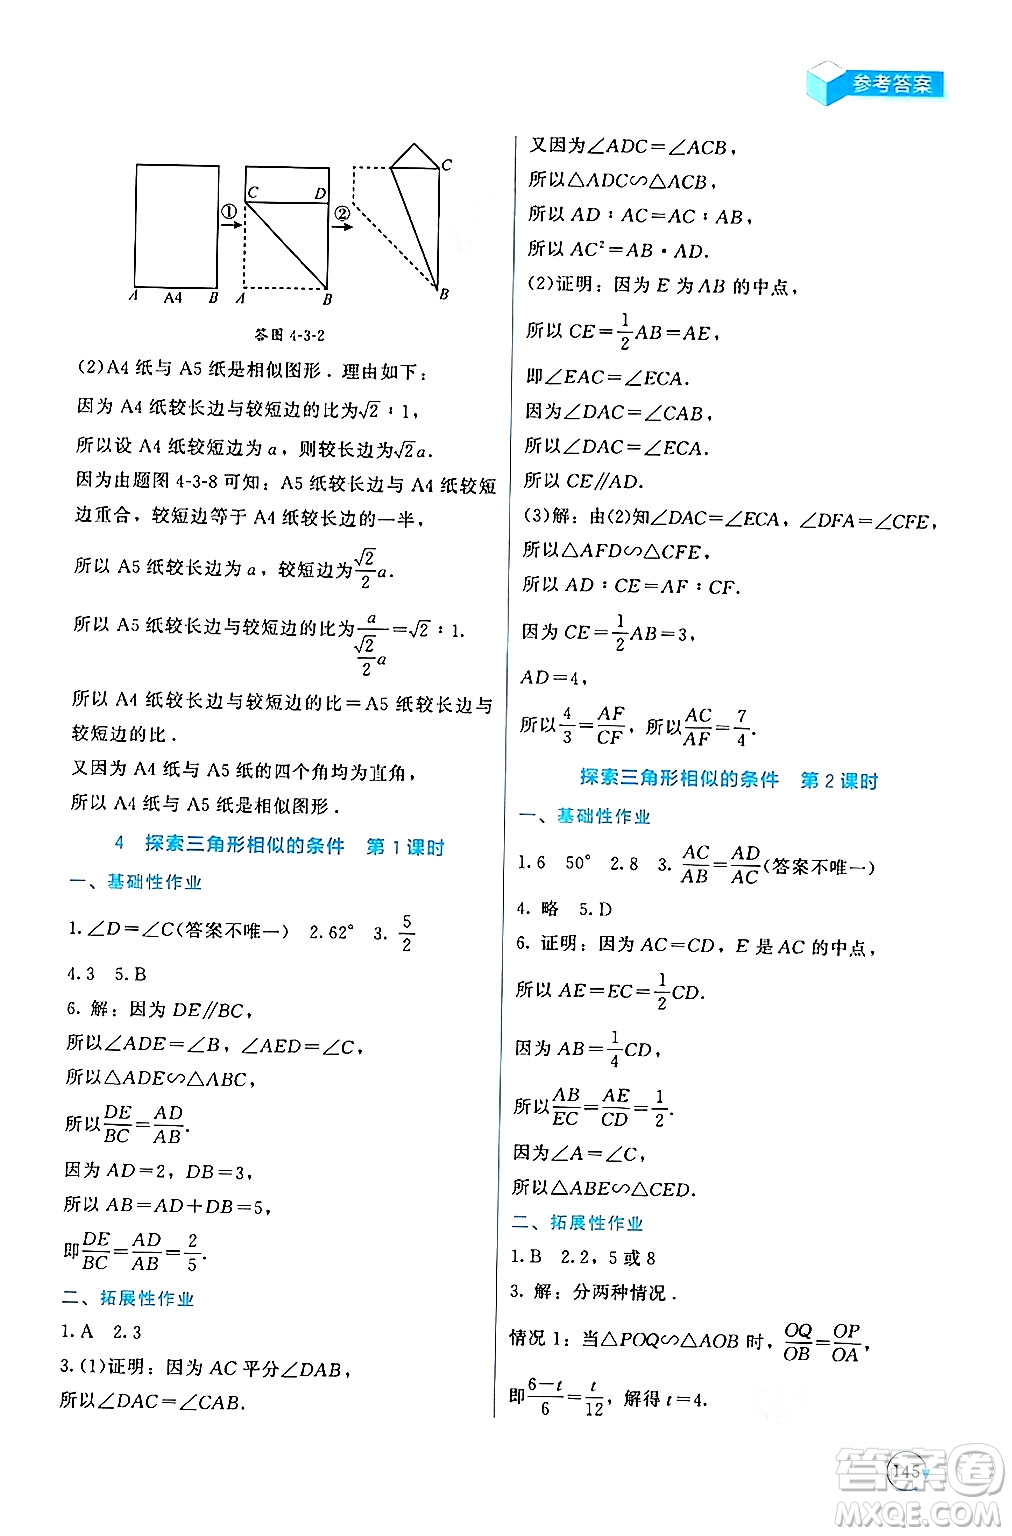 参考答案
C D C
① ②
A A4 B A B B
答图 4-3-2
(2)A4 纸与 A5 纸是相似图形. 理由如下:
因为 A4 纸较长边与较短边的比为√2∶1,
所以设 A4 纸较短边为 a, 则较长边为√2a.
因为由题图 4-3-8 可知: A5 纸较长边与 A4 纸较短
边重合, 较短边等于 A4 纸较长边的一半,
所以 A5 纸较长边为 a, 较短边为√2/2 a.
所以 A5 纸较长边与较短边的比为a/(√2/2 a)=√2∶1.
所以 A4 纸较长边与较短边的比=A5 纸较长边与
较短边的比.
又因为 A4 纸与 A5 纸的四个角均为直角,
所以 A4 纸与 A5 纸是相似图形.
4 探索三角形相似的条件 第 1 课时
一、基础性作业
1.∠D=∠C(答案不唯一) 2.62° 3.5/2
4.3 5.B
6. 解: 因为 DE∥BC,
所以∠ADE=∠B, ∠AED=∠C,
所以△ADE∽△ABC,
所以DE/BC=AD/AB.
因为 AD=2, DB=3,
所以 AB=AD+DB=5,
即DE/BC=AD/AB=2/5.
二、拓展性作业
1.A 2.3
3.(1)证明: 因为 AC 平分∠DAB,
所以∠DAC=∠CAB.
又因为∠ADC=∠ACB,
所以△ADC∽△ACB,
所以 AD∶AC=AC∶AB,
所以 AC²=AB·AD.
(2)证明: 因为 E 为 AB 的中点,
所以 CE=1/2AB=AE,
即∠EAC=∠ECA.
因为∠DAC=∠CAB,
所以∠DAC=∠ECA.
所以 CE∥AD.
(3)解: 由(2)知∠DAC=∠ECA, ∠DFA=∠CFE,
所以△AFD∽△CFE,
所以 AD∶CE=AF∶CF.
因为 CE=1/2AB=3,
AD=4,
所以4/3=AF/CF, 所以AC/AF=7/4.
探索三角形相似的条件 第 2 课时
一、基础性作业
1.6 50° 2.8 3.AC/AB=AD/AC(答案不唯一)
4. 略 5.D
6. 证明: 因为 AC=CD, E 是 AC 的中点,
所以 AE=EC=1/2CD.
因为 AB=1/4CD,
所以AB/EC=AE/CD=1/2.
因为∠A=∠C,
所以△ABE∽△CED.
二、拓展性作业
1.B 2.2, 5 或 8
3. 解: 分两种情况.
情况 1: 当△POQ∽△AOB 时, OQ/OB=OP/OA,
即(6-t)/6=t/12, 解得 t=4.
145
答案卷
MXQE.COM